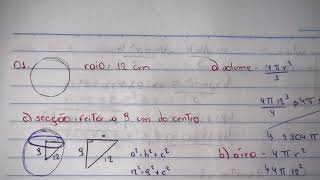 01. raio = 12 cm
a) volume = 4πr³
3
4π12³
9 2304π
c) secção reta a 9 cm do centro
9 12
9 12
a² = b² + c²
12² = 9² + c²
b) área = 4πr²
4π12²